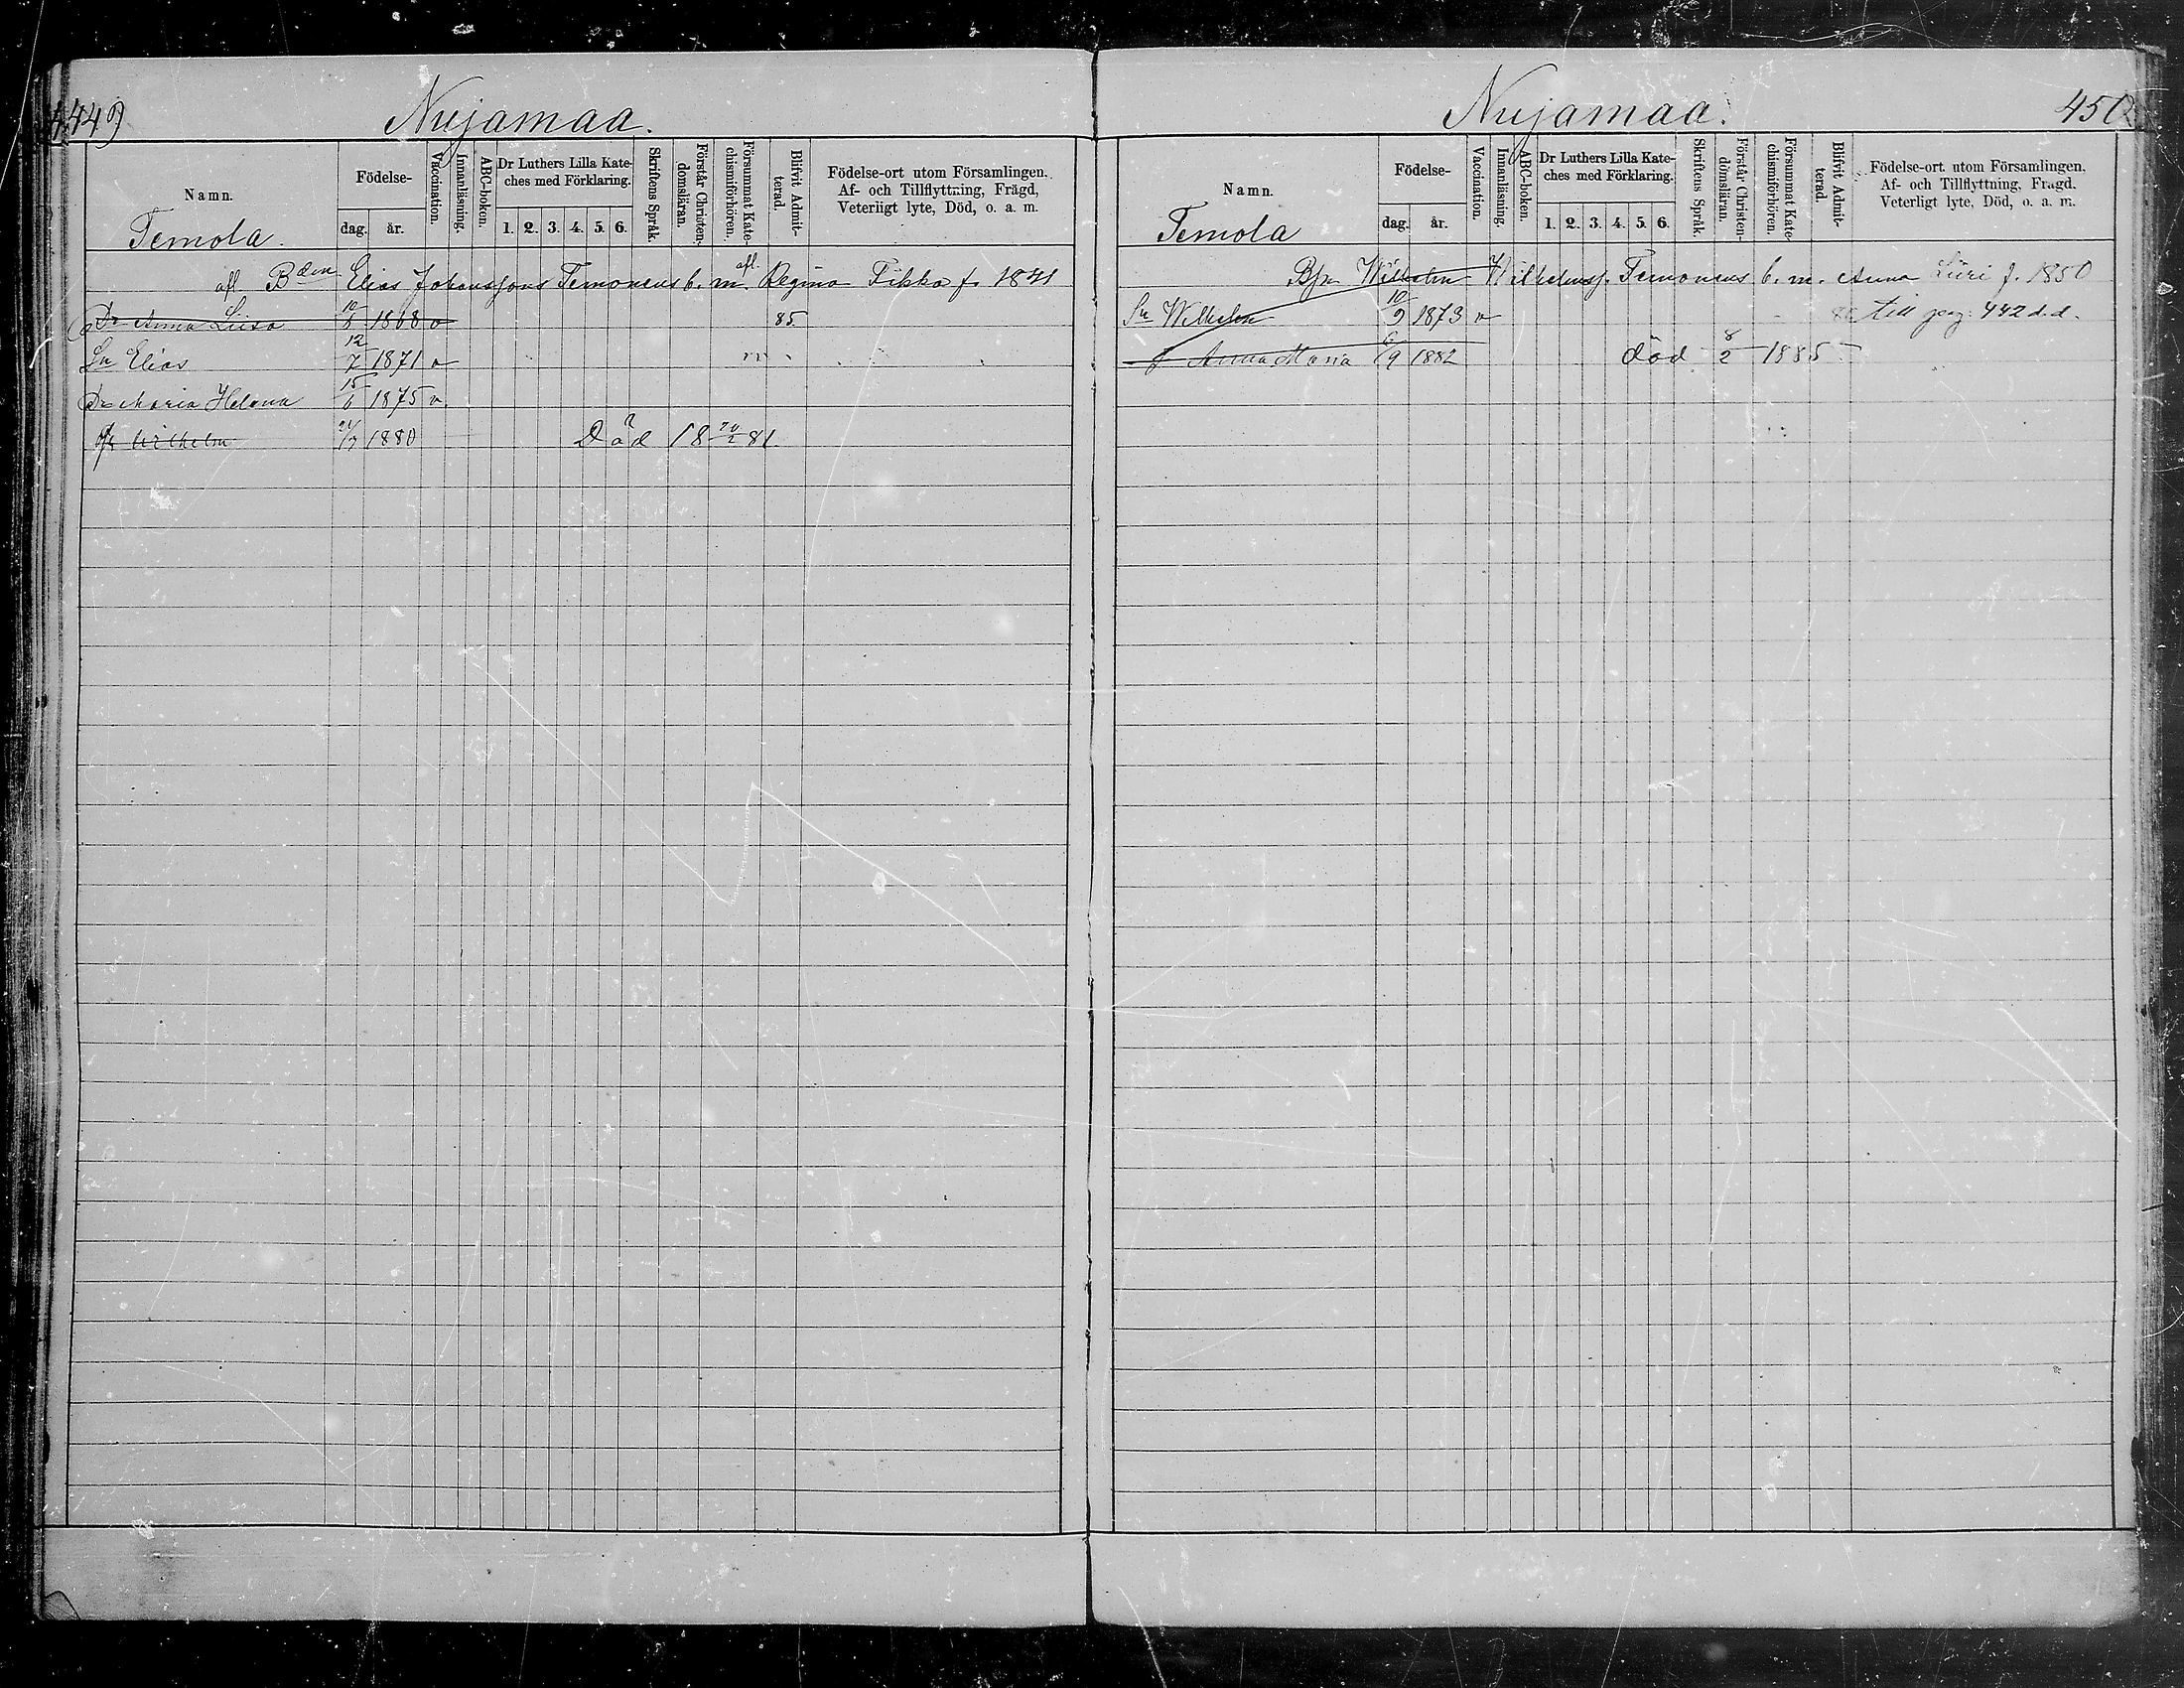 449
Nuijamaa.
Namn.
Temola.
Födelse-
dag.
år.
Vaccination.
Innanläsning.
ABC-boken.
Dr Luthers Lilla Kate-
ches med Förklaring.
1. 2. 3. 4. 5. 6.
Skriftens Språk.
Förstår Christen-
domsläran.
Försummat Kate-
chismiförhören.
Blifvit Admit-
terad.
Födelse-ort utom Församlingen,
Af- och Tillflyttning, Frägd,
Veterligt lyte, Död, o. a. m.
afl Bden Elias Johanssons Temonens b. m. afl. Regina Tikka f. 1841
Dr Anna Liisa 10/8 1868 v 85
Sn Elias 12/7 1871 v
Dr Maria Helena 15/6 1875 v.
Wilhelm 24/7 1880 Död 18 20/2 81
Nuijamaa.
450
Namn.
Temola
Födelse-
dag.
år.
Vaccination.
Innanläsning.
ABC-boken.
Dr Luthers Lilla Kate-
ches med Förklaring.
1. 2. 3. 4. 5. 6.
Skriftens Språk.
Förstår Christen-
domsläran.
Försummat Kate-
chismiförhören.
Blifvit Admit-
terad.
Födelse-ort utom Församlingen,
Af- och Tillflyttning, Fragd,
Veterligt lyte, Död, o. a. m.
Wilhelm Wilhelmss. Temonens b. m. Anna Liiri f. 1850
Sn Wilhelm 10/9 1873 v till pag: 442 d.d.
Anna Maria 6/9 1882 död 8/2 1885